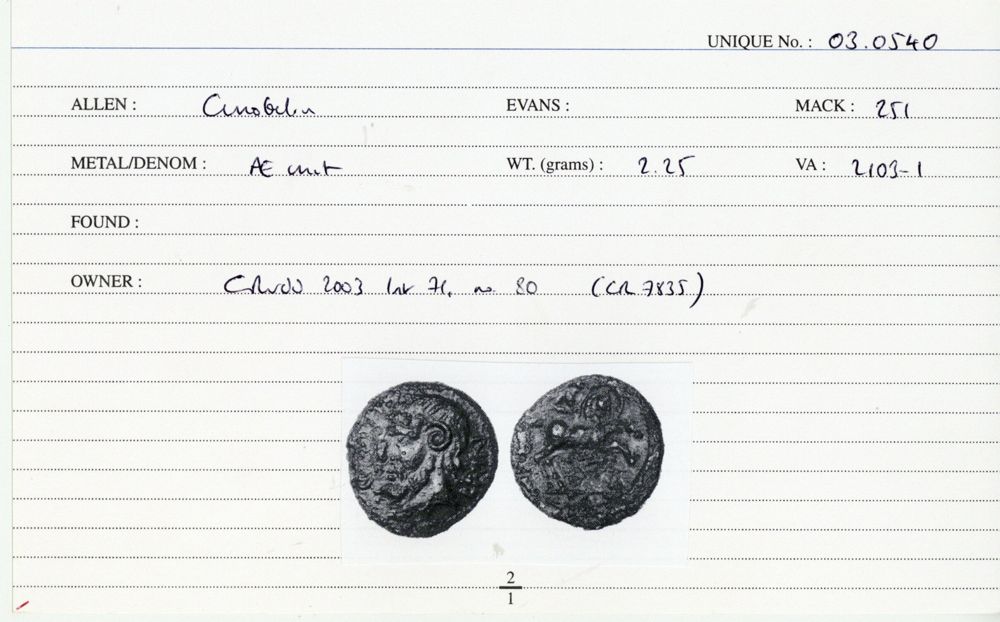 UNIQUE No. : 03.0540
ALLEN : Cunobelin EVANS : MACK : 251
METAL/DENOM : Æ unit WT. (grams) : 2.25 VA : 2103-1
FOUND :
OWNER : 2003 71, no. 80 (CR 7835)
2
1